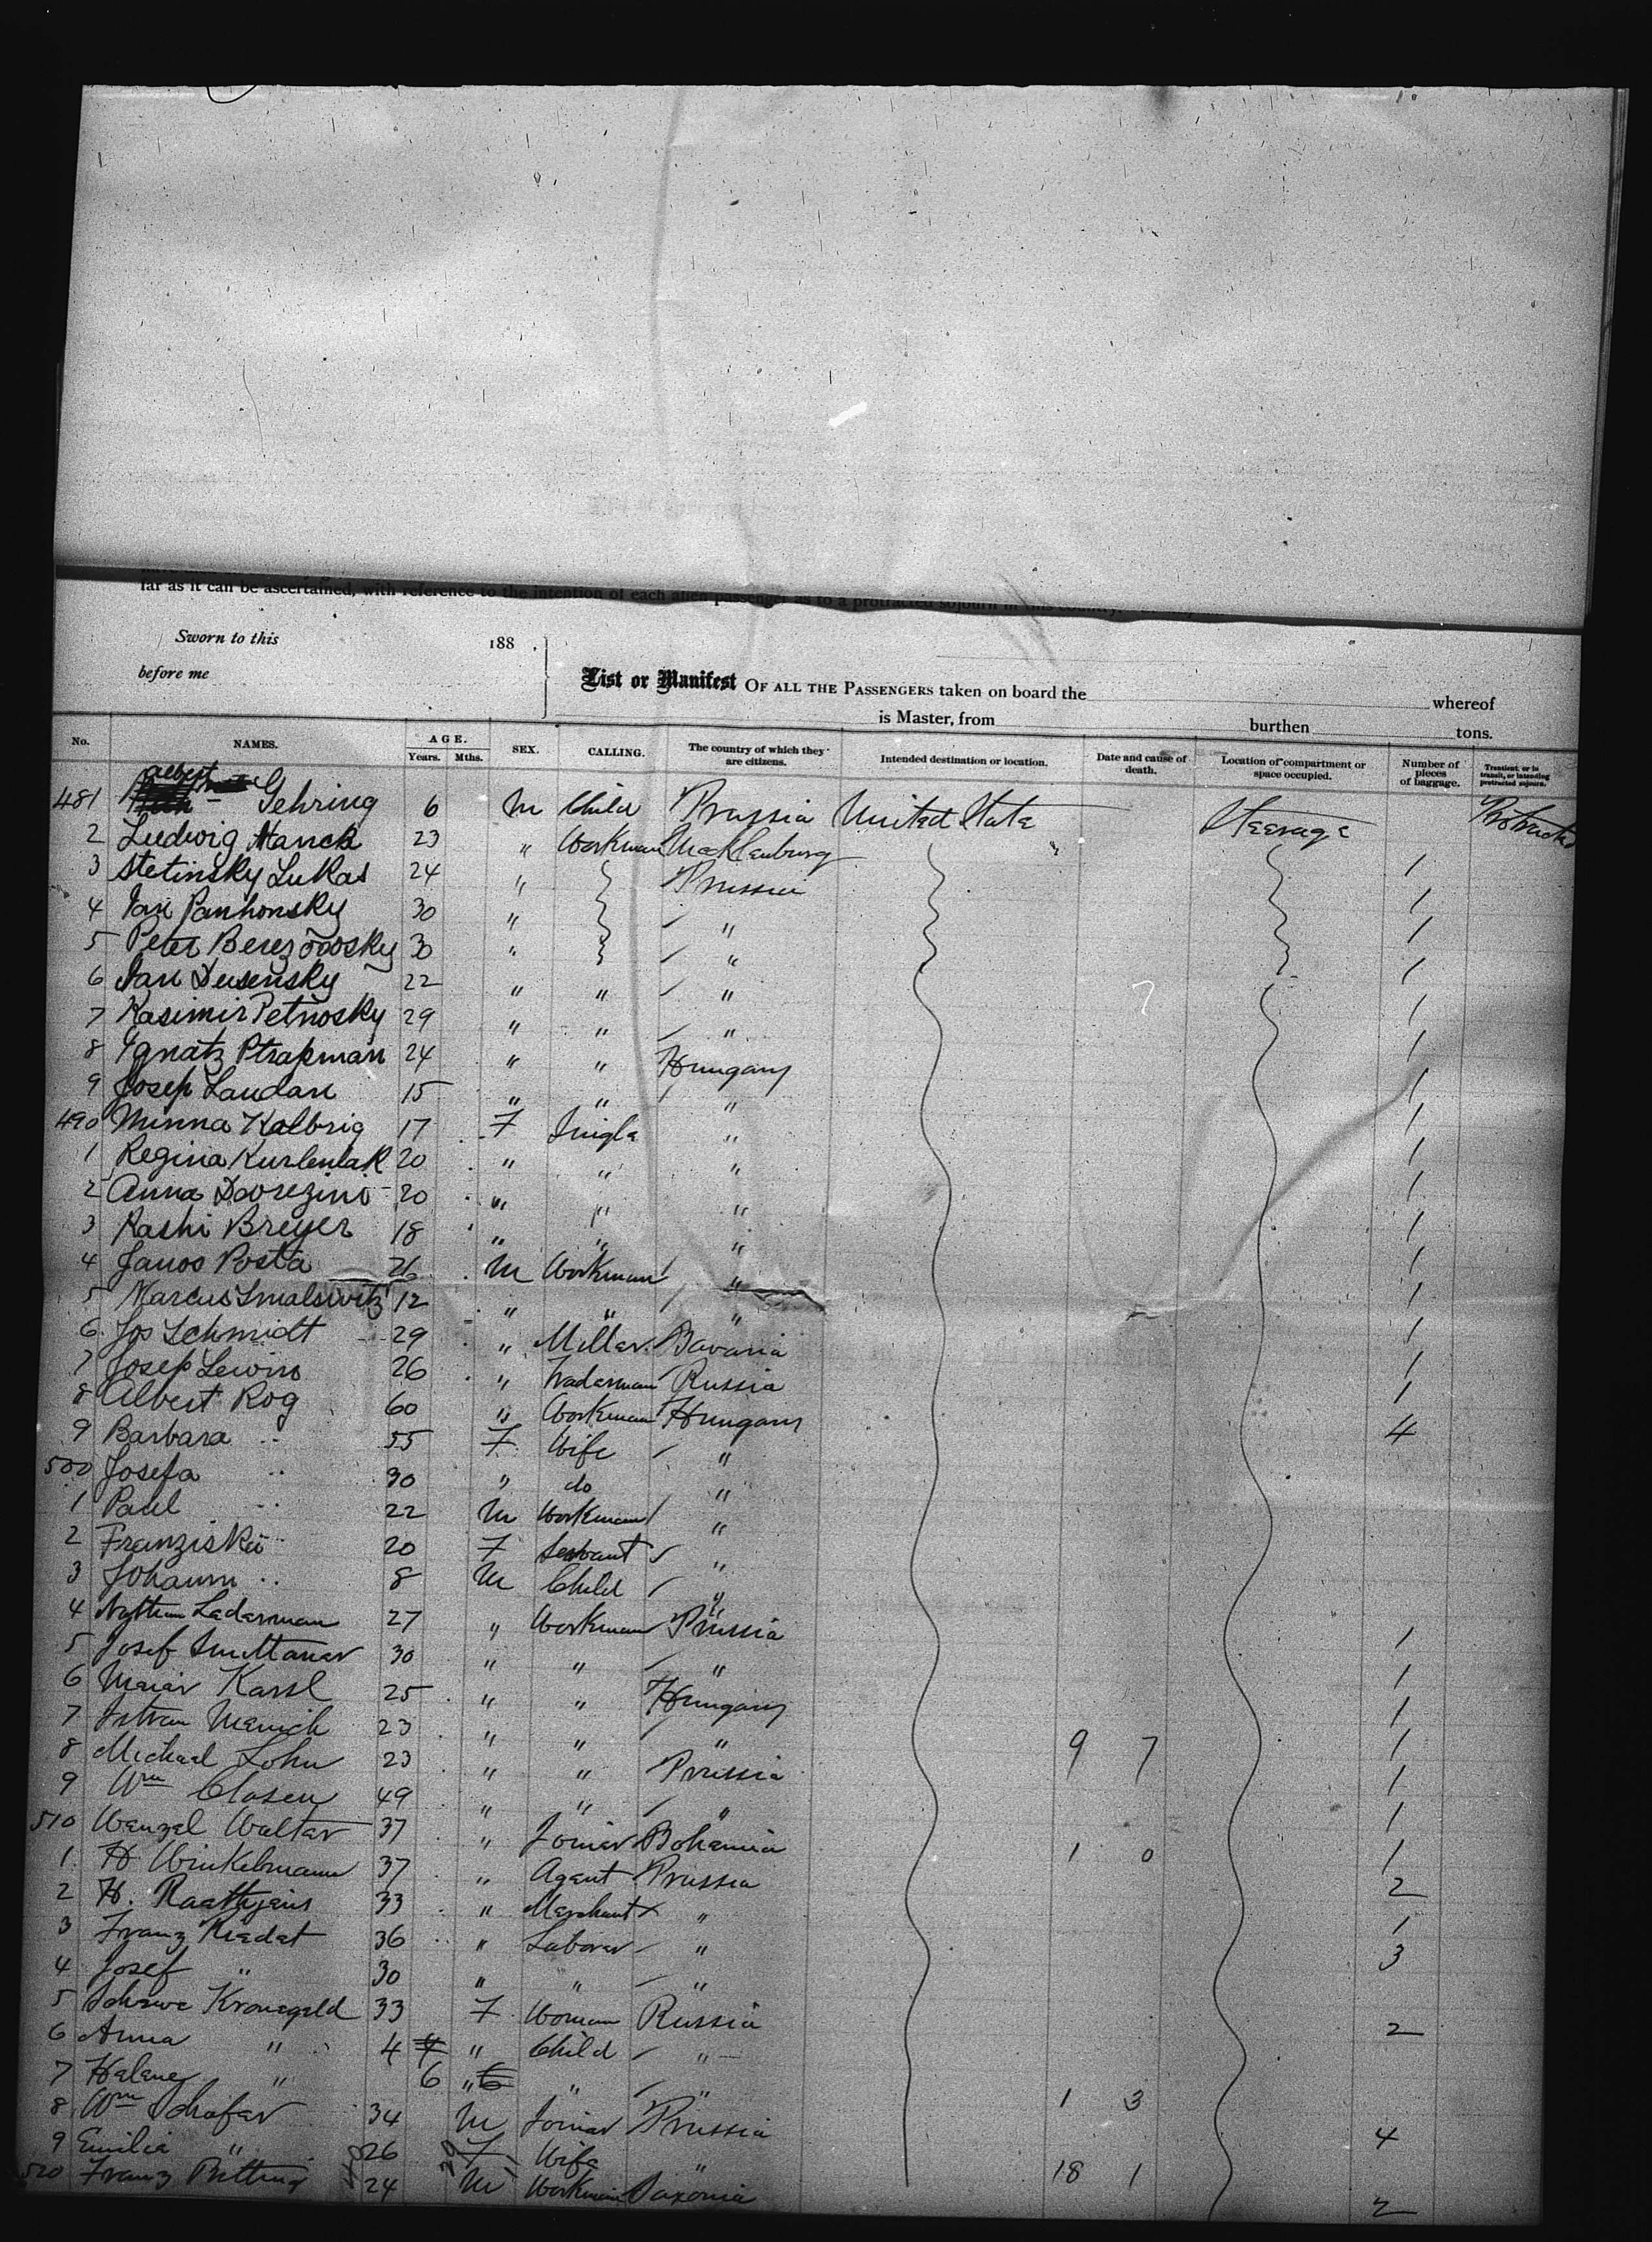 far as it can be ascertained, with reference to the intention of each alien passenger as to a protracted sojourn in this country.
Sworn to this 188 .
before me
List or Manifest OF ALL THE PASSENGERS taken on board the whereof
is Master, from burthen tons.
No. NAMES. AGE. Years. Mths. SEX. CALLING. The country of which they are citizens. Intended destination or location. Date and cause of death. Location of compartment or space occupied. Number of pieces of baggage. Transient, or in transit, or intending protracted sojourn.
481 Albert Gehring 6 M Child Prussia United State Steerage
2 Ludwig Manck 23 " Workman Mecklenburg 1
3 Stetinsky Lukas 24 " Prussia 1
4 Jan Panhonsky 30 " " 1
5 Peter Berezowosky 30 " " 1
6 Jan Dusensky 22 " " " 1
7 Kasimir Petnosky 29 " " " 1
8 Ignatz Ptrapman 24 " " Hungary 1
9 Josep Laudan 15 " " " 1
490 Minna Kalbrig 17 F Single " 1
1 Regina Kurlentak 20 " " " 1
2 Anna 20 " " " 1
3 Rashi Breyer 18 " " " 1
4 Janos Posta 26 M Workman " 1
5 Marcus Smalsivitz 12 " " " 1
6 Jos Schmidt 29 " Miller Bavaria 1
7 Josep Lewin 26 " Tradesman Russia 1
8 Albert Rog 60 " Workman Hungary 4
9 Barbara " 55 F Wife "
500 Josefa " 30 " do "
1 Paul " 22 M Workman "
2 Franziska " 20 F Servant "
3 Johann " 8 M Child "
4 Nathan Ledermann 27 " Workman Prussia 1
5 Josef 30 " " " 1
6 Maier Karsl 25 " " Hungary 1
7 Istvan Menich 23 " " " 1
8 Michael Lohn 23 " " Prussia 9 7 1
9 Wm Closen 49 " " " 1
510 Wenzel Walter 37 " Joiner Bohemia 1
1 H Winkelmann 37 " Agent Prussia 1 0 2
2 H. Raathjens 33 " Merchant x " 1
3 Franz Riedat 36 " Laborer " 3
4 Josef " 30 " " "
5 Kronegeld 33 F Woman Russia 2
6 Anna " 4 " Child "
7 Helene " 6 " " "
8 Wm Schafer 34 M Joiner Prussia 1 3 4
9 Emilie " 26 F Wife "
520 Franz Bitting 24 M Workman Saxonia 18 1 2